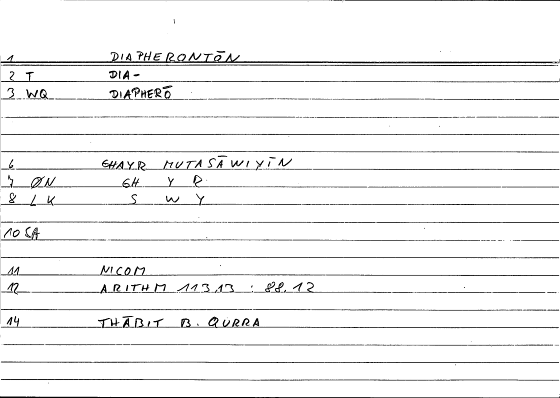 1 DIAPHERONTŌN
2 T DIA-
3 WQ DIAPHERŌ
6 GHAYR MUTASĀWIYĪN
7 ØN GH Y R
8 LK S W Y
10 SA
11 NICOM
12 ARITHM 113.13 : 88.12
14 THĀBIT B. QURRA